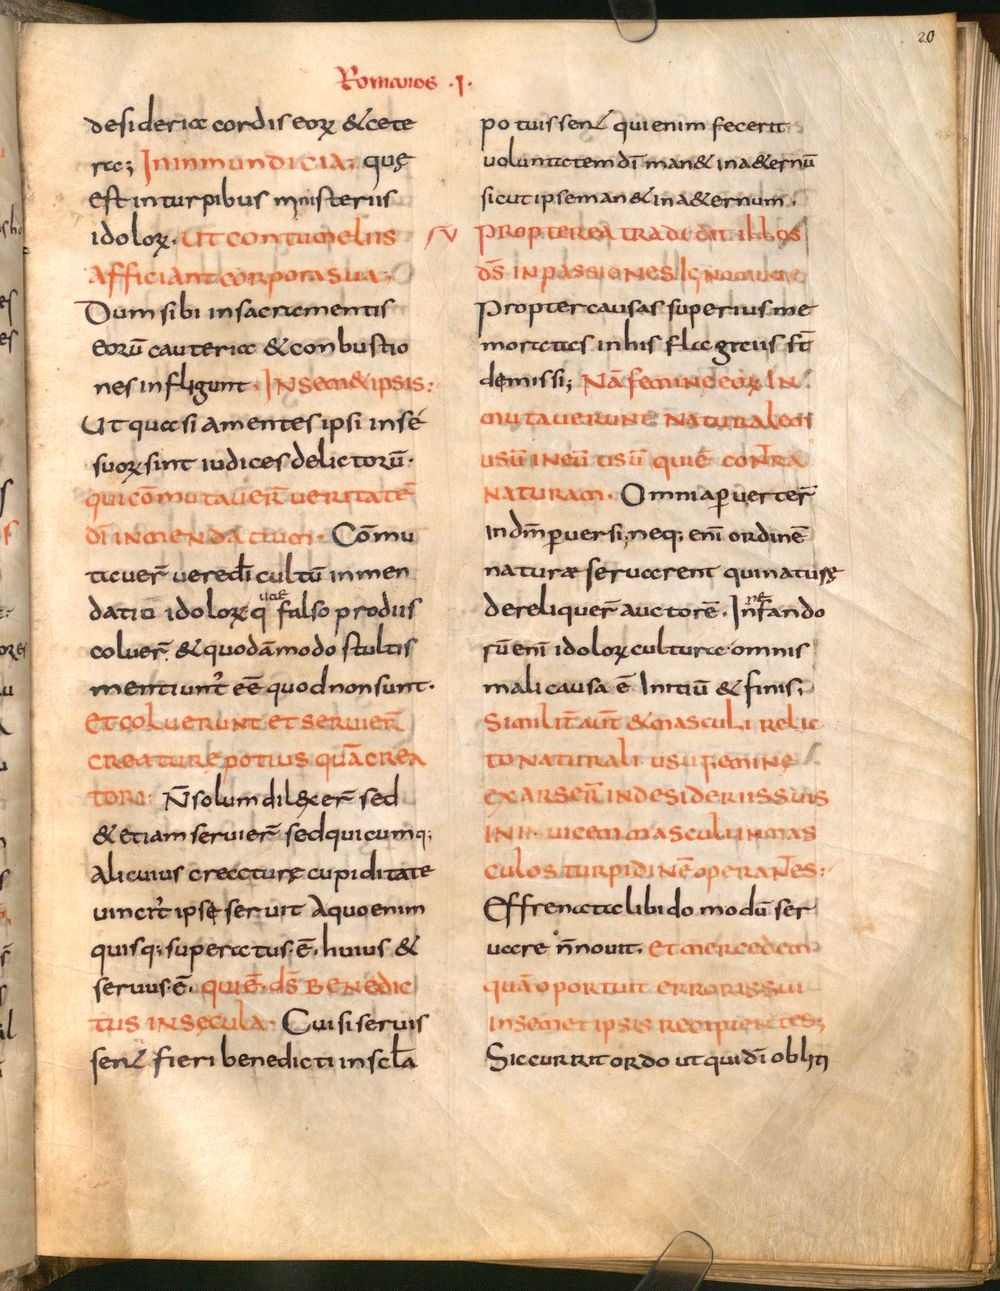 20
Romanos ·I·
desideria cordis eorꝝ &cete
ra; Ininmundicia; quę
est inturpibus ministeriis
idolorꝝ. Ut contumeliis
afficiant corpora sua;
Dum sibi insacramentis
eorū cauteria & conbustio
nes infligunt. INsem&ipsis:
Ut quasi amentes ipsi insé
suorꝝ sint iudices delictorū.
qui cōmutaver̄ veritatē
dī inmendatium. Cōmu
taver̄ veredī cultū inmen
datio idolorꝝ q uae falso prodiis
coluer̄. & quodāmodo stultis
mentiunt̄ eē quod non sunt.
Et coluerunt et servier̄
creature potius quā crea
tori. N̄ solum dilexer̄ sed
& etiam servier̄ sed quicumq;
alicuius creaturę cupiditate
vincit̄ ipsę servit Aquoenim
quisq; superatus·ē· huius &
servus·ē. quiē· ds̄ Benedic
tus insęcula. Cui si servis
sen& fieri benedicti inscl̄a
potuissen& quienim fecerit
voluntatem dī man& in a&ernū
sicut ipse man& in a&ernum.
Propterea tradedit illos
ds̄ inpassiones Ignominie
Propter causas superius me
moratas inhis flagreiis st̄
demissi; Nā femine eorꝝ In
mutaverunt naturalem
usū ineū usū quiē contra
naturam. Omnia pverter̄
indm̄ pversi; neq; enī ordinē
naturæ servarent quinaturę
dereliquer̄ auctorē. In̄fando ne
rū enī idolorꝝ culturae omnis
mali causa ē Initiū & finis;
Similit̄ aut̄ & masculi relic
to naturali usu femine
exarser̄ indesideriis suis
INin vicem masculi inmas
culos turpidinē operantes:
Effrenata libido modū ser
vare n̄ novit. Et mercedem
quā oportuit erroris sui
insemetipsis recipientes;
Sic currit ordo ut qui dī obliti